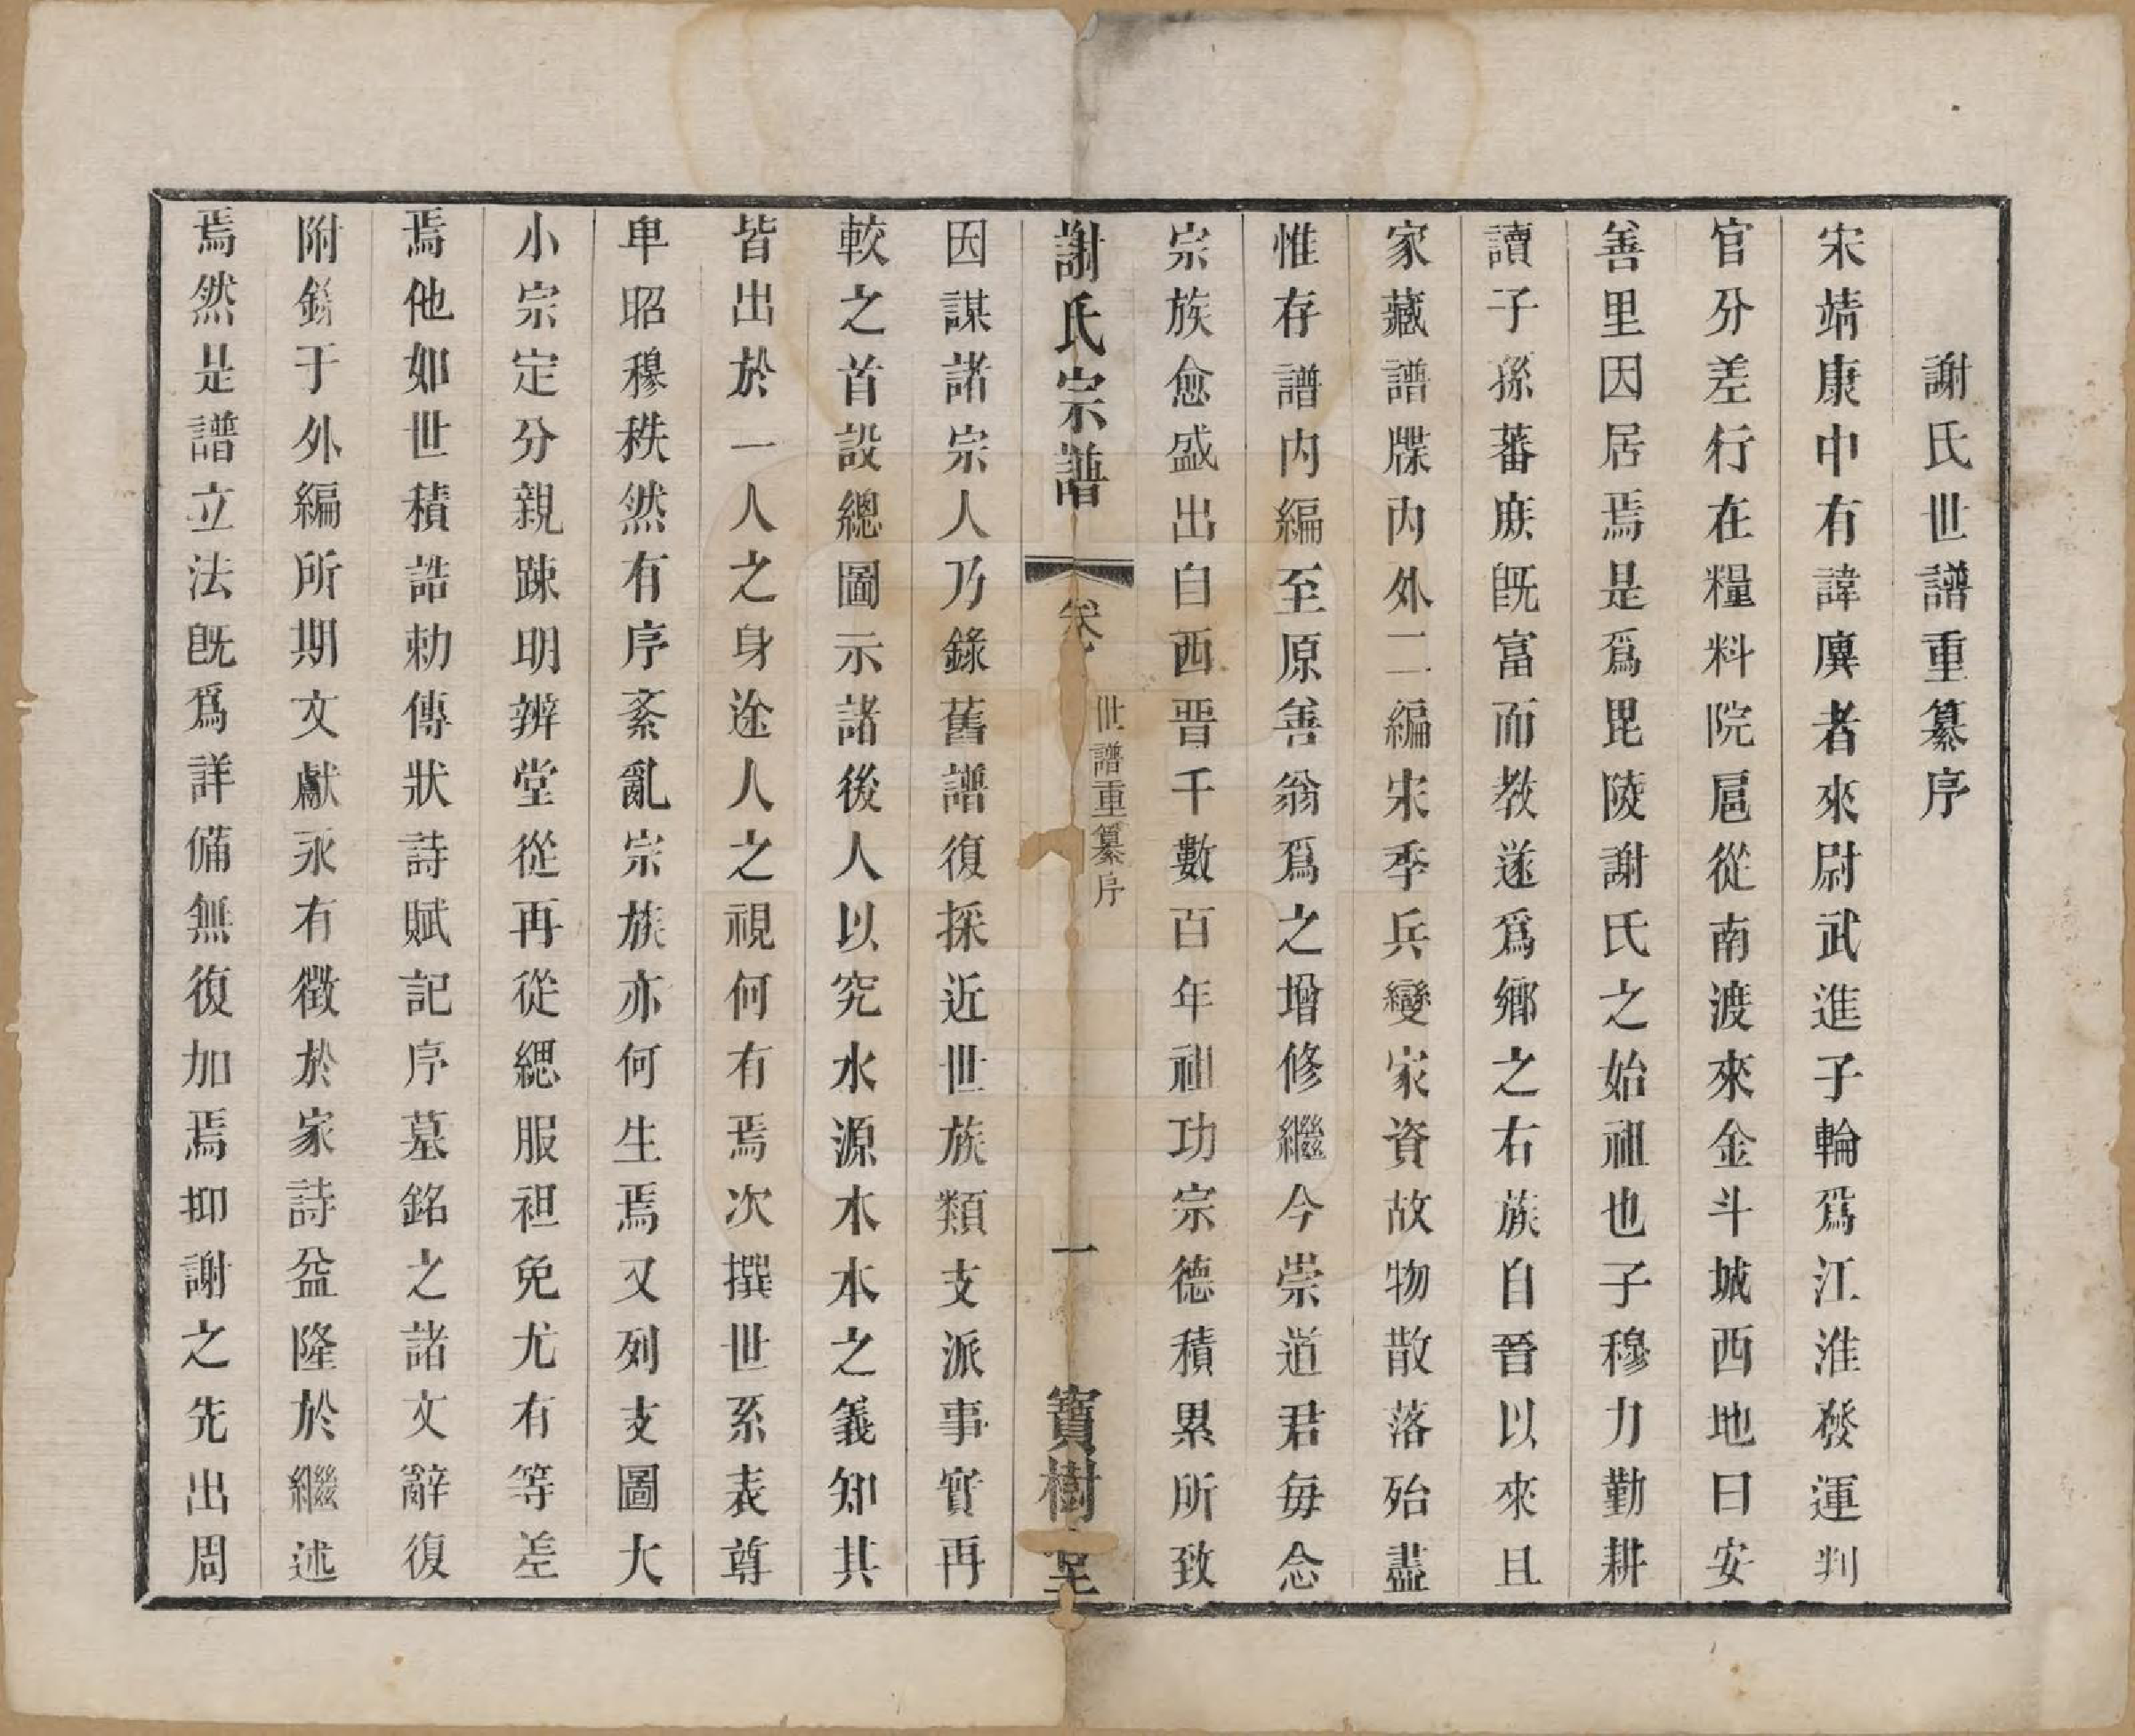 謝氏世譜重纂序
宋靖康中有諱廙者來尉武進子輪爲江淮發運判
官分差行在糧料院扈從南渡來金斗城西地曰安
善里因居焉是爲毘陵謝氏之始祖也子穆力勤耕
讀子孫蕃庶既富而教遂爲鄉之右族自晉以來且
家藏譜牒內外二編宋季兵變家資故物散落殆盡
惟存譜內編至原善翁爲之增修繼今崇道君每念
宗族愈盛出自西晋千數百年祖功宗德積累所致
謝氏宗譜 卷 世譜重纂序 一 寶樹堂
因謀諸宗人乃錄舊譜復採近世族類支派事實再
較之首設總圖示諸後人以究水源木本之義知其
皆出於一人之身途人之視何有焉次撰世系表尊
卑昭穆秩然有序紊亂宗族亦何生焉又列支圖大
小宗定分親踈明辨堂從再從緦服袒免尤有等差
焉他如世積誥勅傳狀詩賦記序墓銘之諸文辭復
附錄于外編所期文獻永有徵於家詩益隆於繼述
焉然是譜立法既爲詳備無復加焉抑謝之先出周